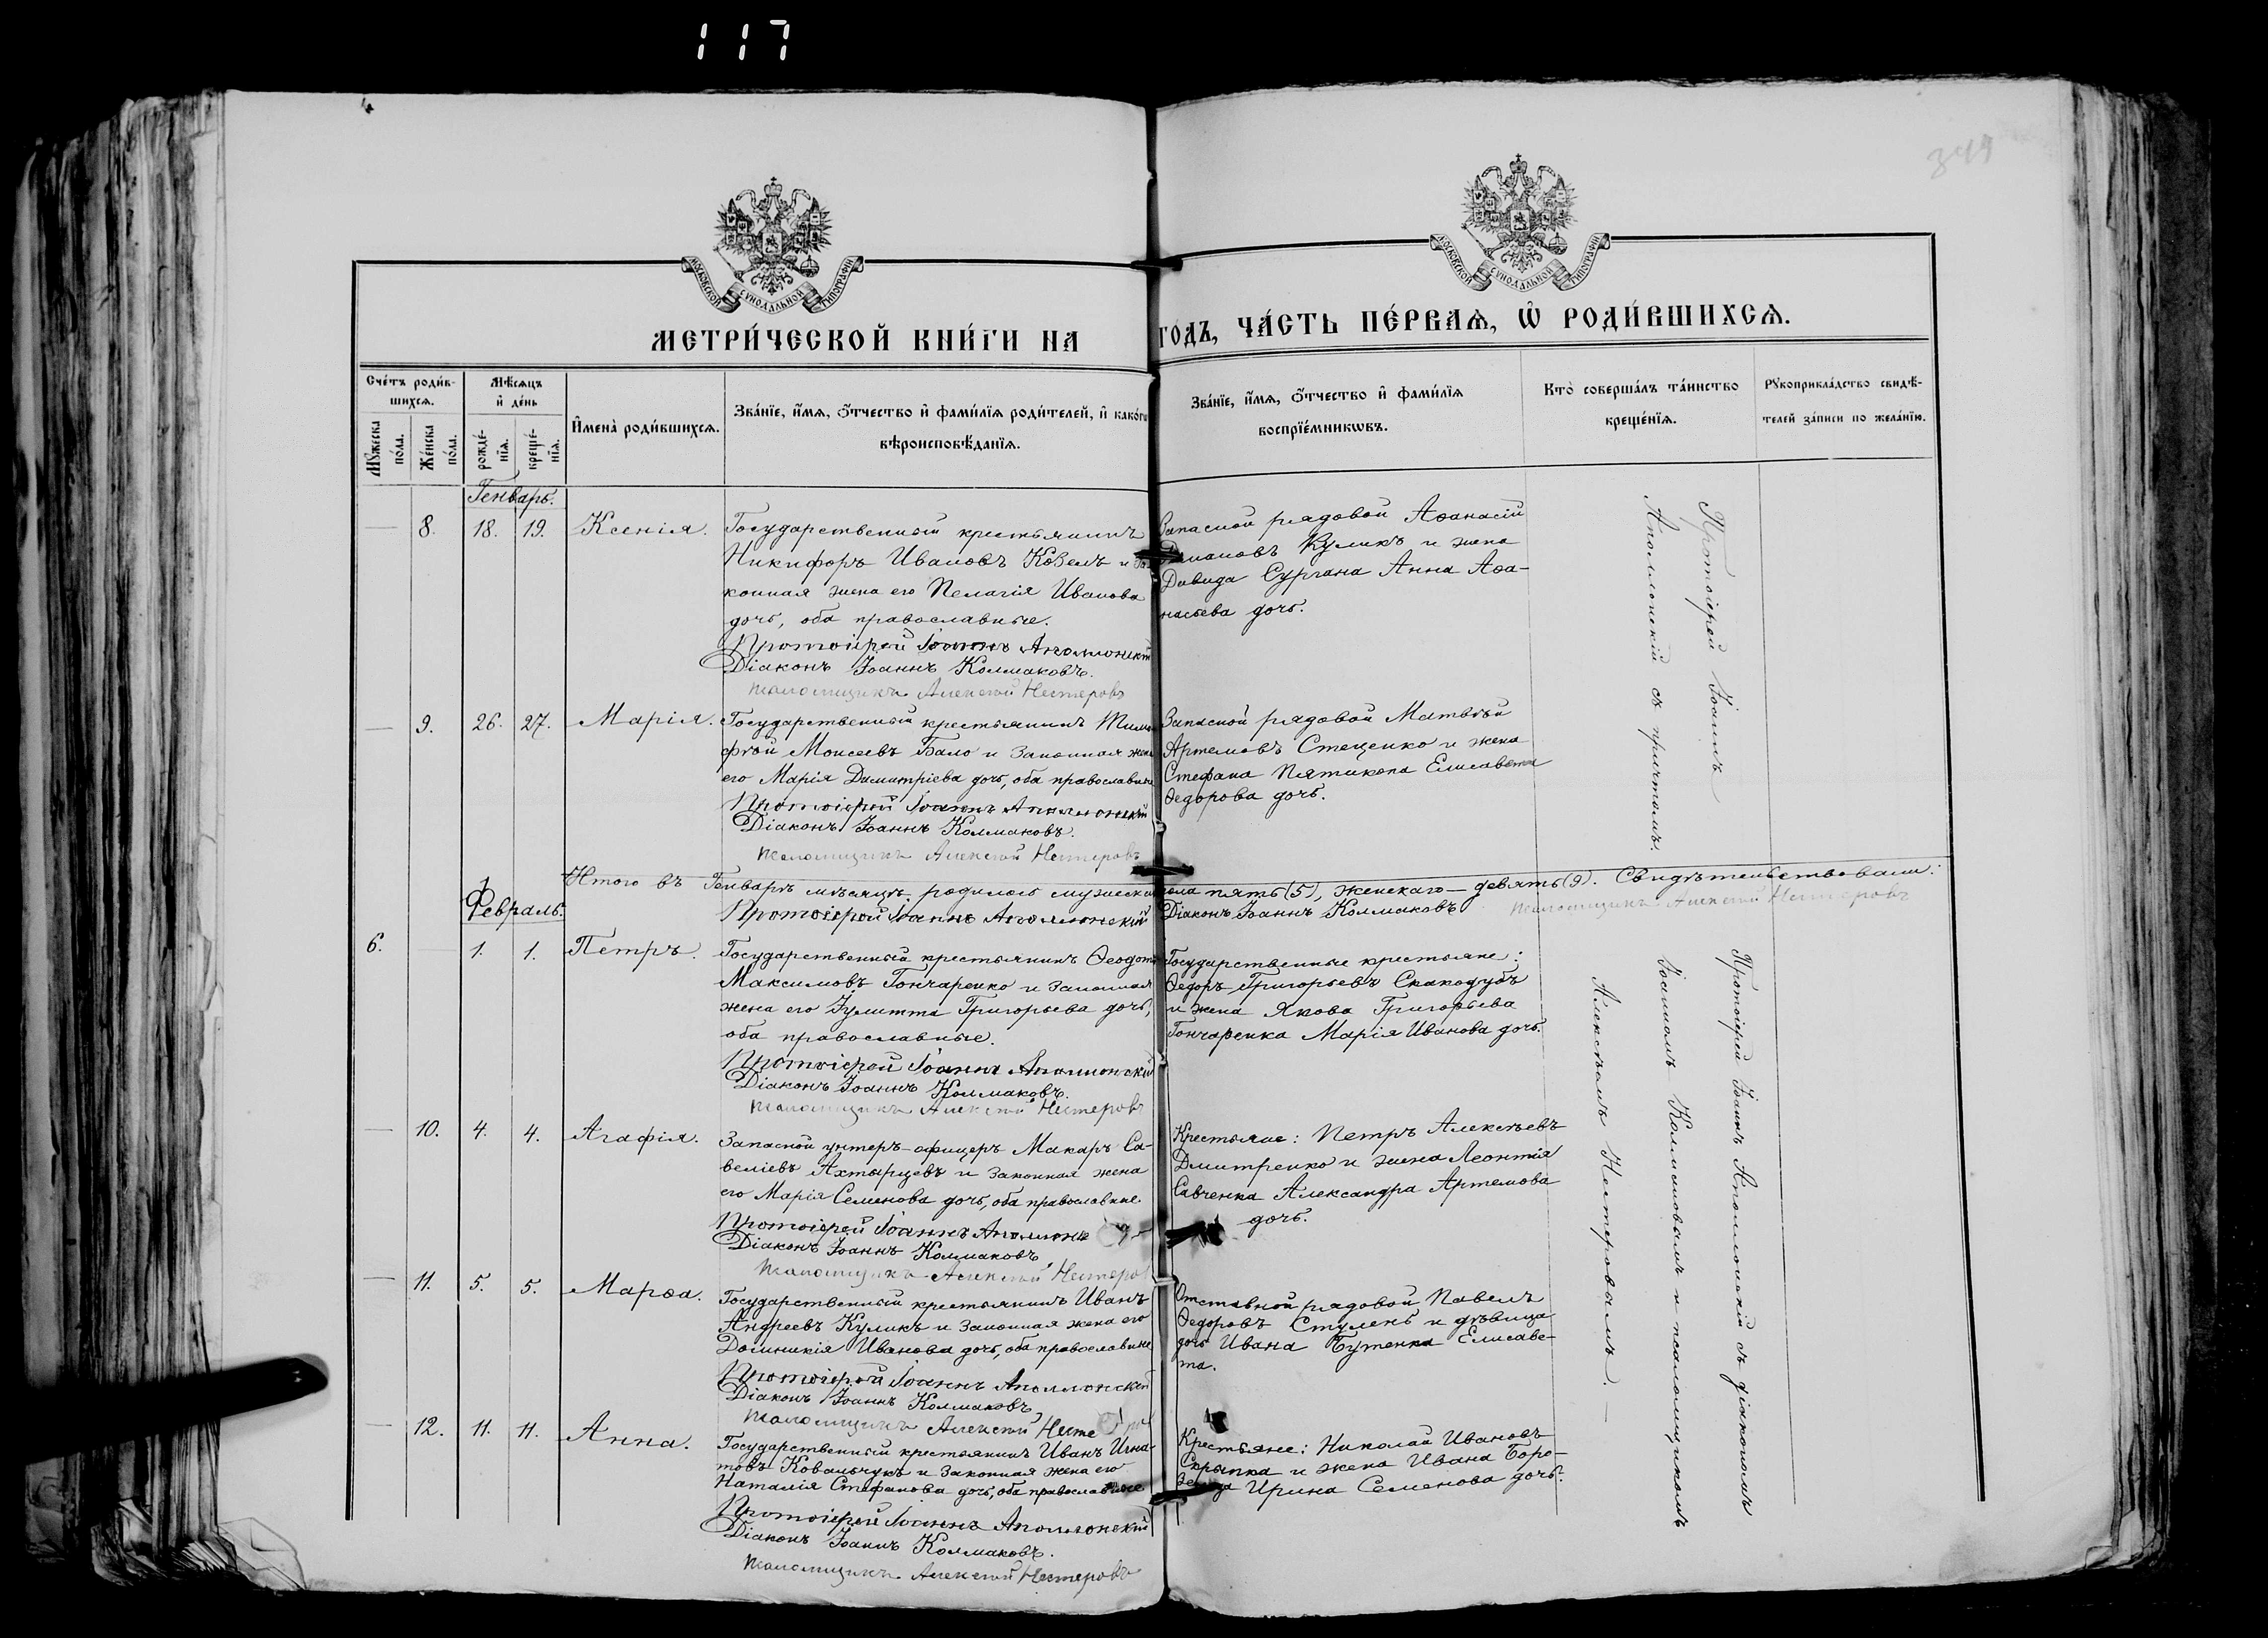 117
349
МОСКОВСКОЙ СѴНОДАЛЬНОЙ ТИПОГРАФІИ
МОСКОВСКОЙ СѴНОДАЛЬНОЙ ТИПОГРАФІИ
МЕТРИ́ЧЕСКОЙ КНИ́ГИ НА ГО́ДЪ, ЧА́СТЬ ПЕ́РВАѦ, Ѡ҆ РОДИ́ВШИХСѦ.
Сче́тъ роди́в-
шихсѧ.
Мꙋ́жеска по́ла.
Же́нска по́ла.
Мѣ́сѧцъ
и҆ де́нь
рожде́-
нїѧ.
креще́-
нїѧ.
И҆мена̀ роди́вшихсѧ.
Зва́нїе, и҆́мѧ, ѻ҆́тчество и҆ фами́лїѧ роди́телей, и҆ како́гѡ
вѣроисповѣ́данїѧ.
Зва́нїе, и҆́мѧ, ѻ҆́тчество и҆ фами́лїѧ
воспрїе́мникѡвъ.
Кто̀ соверша́лъ та́инство
креще́нїѧ.
Рꙋкоприкла́дство свидѣ́-
телей за́писи по жела́нїю.
Генварь.
— 8. 18. 19. Ксенія.
Государственный крестьянинъ
Никифоръ Ивановъ Козелъ и за-
конная жена его Пелагія Иванова
дочь, оба православные.
Протоіерей Іоаннъ Аполлонскій
Діаконъ Іоаннъ Колмаковъ.
Псаломщикъ Алексѣй Нестеровъ
Запасной рядовой Аѳанасій
Куликъ и жена
Давида Сургана Анна Аѳа-
насьева дочь.
Протоіерей Іоаннъ
Аполлонскій съ причтомъ.
— 9. 26. 27. Марія.
Государственный крестьянинъ Тимо-
фѣй Моисеевъ Бало и законная жена
его Марія Димитріева дочь, оба православные
Протоіерей Іоаннъ Аполлонскій
Діаконъ Іоаннъ Колмаковъ.
Псаломщикъ Алексѣй Нестеровъ
Запасной рядовой Матвѣй
Артемовъ Стеценко и жена
Стефана Пятикопа Елисавета
Ѳедорова дочь.
Итого въ Генварѣ мѣсяцѣ родилось мужеска пола пять (5), женскаго — девять (9). Свидѣтельствовали:
Протоіерей Іоаннъ Аполлонскій Діаконъ Іоаннъ Колмаковъ Псаломщикъ Алексѣй Нестеровъ
Февраль.
6. — 1. 1. Петръ.
Государственный крестьянинъ Ѳеодотъ
Максимовъ Гончаренко и законная
жена его Іулитта Григорьева дочь,
оба православные.
Протоіерей Іоаннъ Аполлонскій
Діаконъ Іоаннъ Колмаковъ.
Псаломщикъ Алексѣй Нестеровъ
Государственные крестьяне:
Ѳедоръ Григорьевъ Скакодубъ
и жена Якова Григорьева
Гончаренка Марія Иванова дочь.
Протоіерей Іоаннъ Аполлонскій съ діакономъ
Іоанномъ Колмаковымъ и псаломщикомъ
Алексѣемъ Нестеровымъ. —
— 10. 4. 4. Агафія.
Запасной унтеръ-офицеръ Макаръ Са-
веліевъ Ахтырцевъ и законная жена
его Марія Семенова дочь, оба православные
Протоіерей Іоаннъ
Діаконъ Іоаннъ Колмаковъ
Псаломщикъ Алексѣй Нестеровъ
Крестьяне: Петръ Алексѣевъ
Дмитренко и жена Леонтія
Савченка Александра Артемова
дочь.
— 11. 5. 5. Марѳа.
Государственный крестьянинъ Иванъ
Андреевъ Куликъ и законная жена его
Домникія Иванова дочь, оба православные
Протоіерей Іоаннъ Аполлонскій
Діаконъ Іоаннъ Колмаковъ
Псаломщикъ Алексѣй
Отставной рядовой Павелъ
Ѳедоровъ Ступень и дѣвица
дочь Ивана Бутенка Елисаве-
та.
— 12. 11. 11. Анна.
Государственный крестьянинъ Иванъ Игна-
товъ Ковальчукъ и законная жена его
Наталія Стефанова дочь, оба православные
Протоіерей Іоаннъ Аполлонскій
Діаконъ Іоаннъ Колмаковъ.
Псаломщикъ Алексѣй Нестеровъ
Крестьяне: Николай Ивановъ
Скрыпка и жена Ивана Боро-
Ирина Семенова дочь.